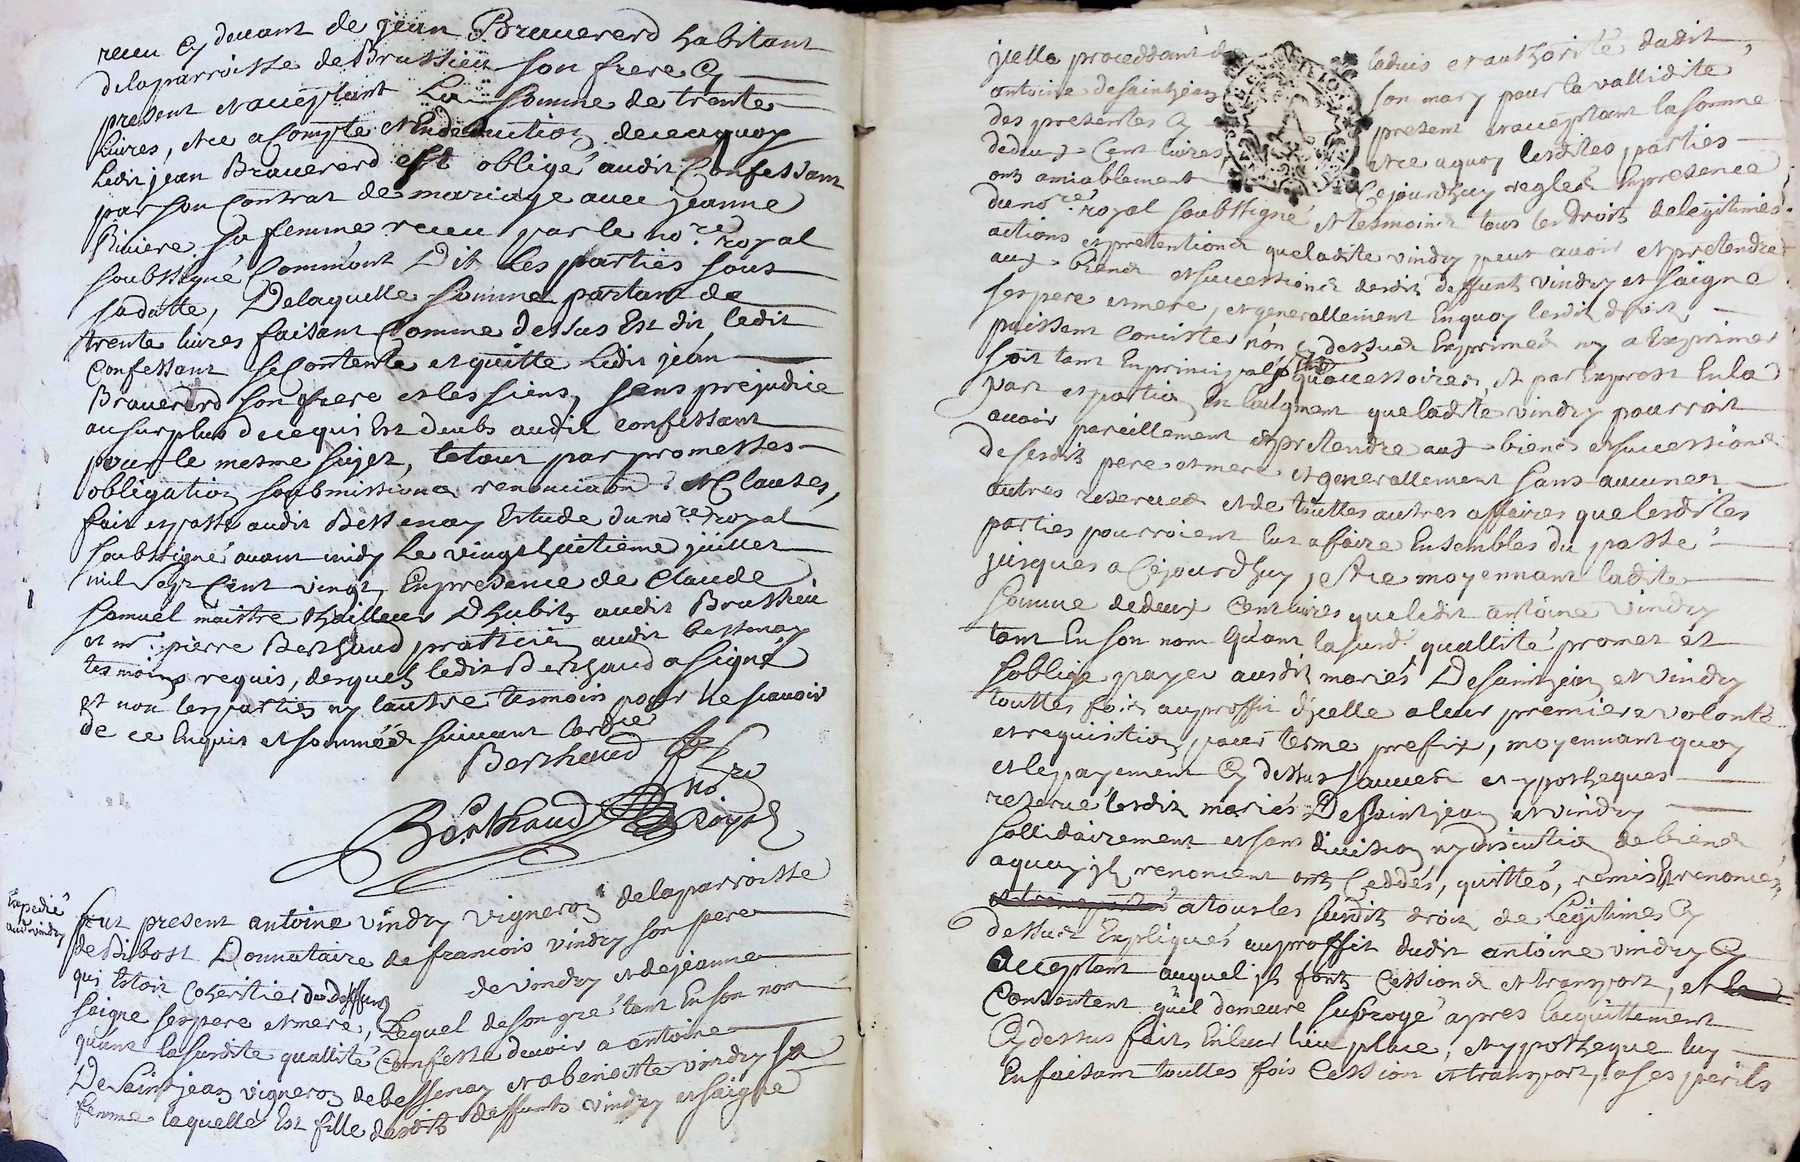 receu cy devant de jean Braveverd habitant
delaparroisse de Brussieu son frere cy
present et acceptant La somme de trente
livres, et ce a compte et En deduction de ce a quoy
Ledit jean Braveverd est obligé audit Confessant
par son Contrat de mariage avec jeanne
Riviere sa femme receu par le no.re royal
soubsigné Comm'ont Dit les parties sous
sa datte, De laquelle somme partant de
trente livres faisant Comme dessus Est dit, ledit
Confessant se Contente et quitte Ledit jean
Braveverd son frere et les siens, sans prejudice
au surplus de ce qui Est deub audit confessant
pour le mesme sujet, le tout par promesses
obligation soubmissions renonciaõn et Clauses,
fait et passé audit Bessenay Estude du no.re royal
soubsigné avant midy Le vingt huitieme juillet
mil sept Cent vingt, En presence de Claude
Samuel maistre thailleur D'habits audit Brussieu
et m.r pierre Berthaud praticien audit bessenay
tesmoins requis, desquels ledit Berthaud a signé
et non les parties ny l'autre tesmoin pour ne scavoir
de ce Enquis et sommées suivant l'ord.ce
Berthaud
Berthaud no.re Royal
Expedié
aud. vindry
Fut present antoine vindry vigneron de la parroisse
de Bibost Donnataire de francois vindry son pere
qui Estoit Coheritier du deffunt de vindry et de jeanne
saigne ses pere et mere, Lequel de son gré tant En son nom
qu'ant la susdite quallité Confesse devoir a antoine
De Saint jean vigneron de bessenay et a benoitte vindry sa
femme laquelle Est fille desdits deffunts vindry et saigne
jcelle proceddant de l'advis et authorité dudit
antoine de saint jean son mary pour la vallidite
des presentes cy present et acceptant la somme
de deux Cent livres, et ce a quoy lesdites parties
ont amiablement Cejourdhuy reglés En presence
du no.re royal soubsigné et tesmoins tous les droits de legitimes
actions et pretentions que ladite vindry peut avoir et pretendre
aux biens et successions desdits deffunts vindry et saigne
ses pere et mere, et generallement En quoy lesdits droits
puissent consister non cy dessus Exprimés ny a Exprimer
soit tant En principal qu'accessoires, et par Exprest En la
part et portion En l'augment que ladite vindry pourroit
avoir pareillement et pretendre aux biens et successions
desdits pere et mere et generallement sans aucunes
autres reserves et de touttes autres affaires que lesdites
parties pourroient Eut affaire Ensembles du passé
jusques a Cejourdhuy, et ce moyennant ladite
somme de deux Cent livres que ledit antoine vindry
tant En son nom qu'ant la susd. quallité promet et
s'oblige payer ausdits mariés De saint jean et vindry
touttes fois au proffit d'jcelle a leur premiere volonté
et requisition pour terme prefix, moyennant quoy
et le payement Cy dessus sauves et ypotheques
reservé lesdits mariés De saint jean et vindry
sollidairement et sans division ny discution de biens
a quoy jls renoncent ont Ceddés, quittés, remis et renoncés
a tous les susdits droits de Legitimes Cy
dessus Expliqués au proffit dudit antoine vindry Cy
acceptant auquel jls font Cession et transport, et
Consentent qu'il demeure subrogé apres l'acquittement
Cy dessus fait En leur lieu place, et ypotheque luy
En faisant touttes fois Cession et transport, a ses perils